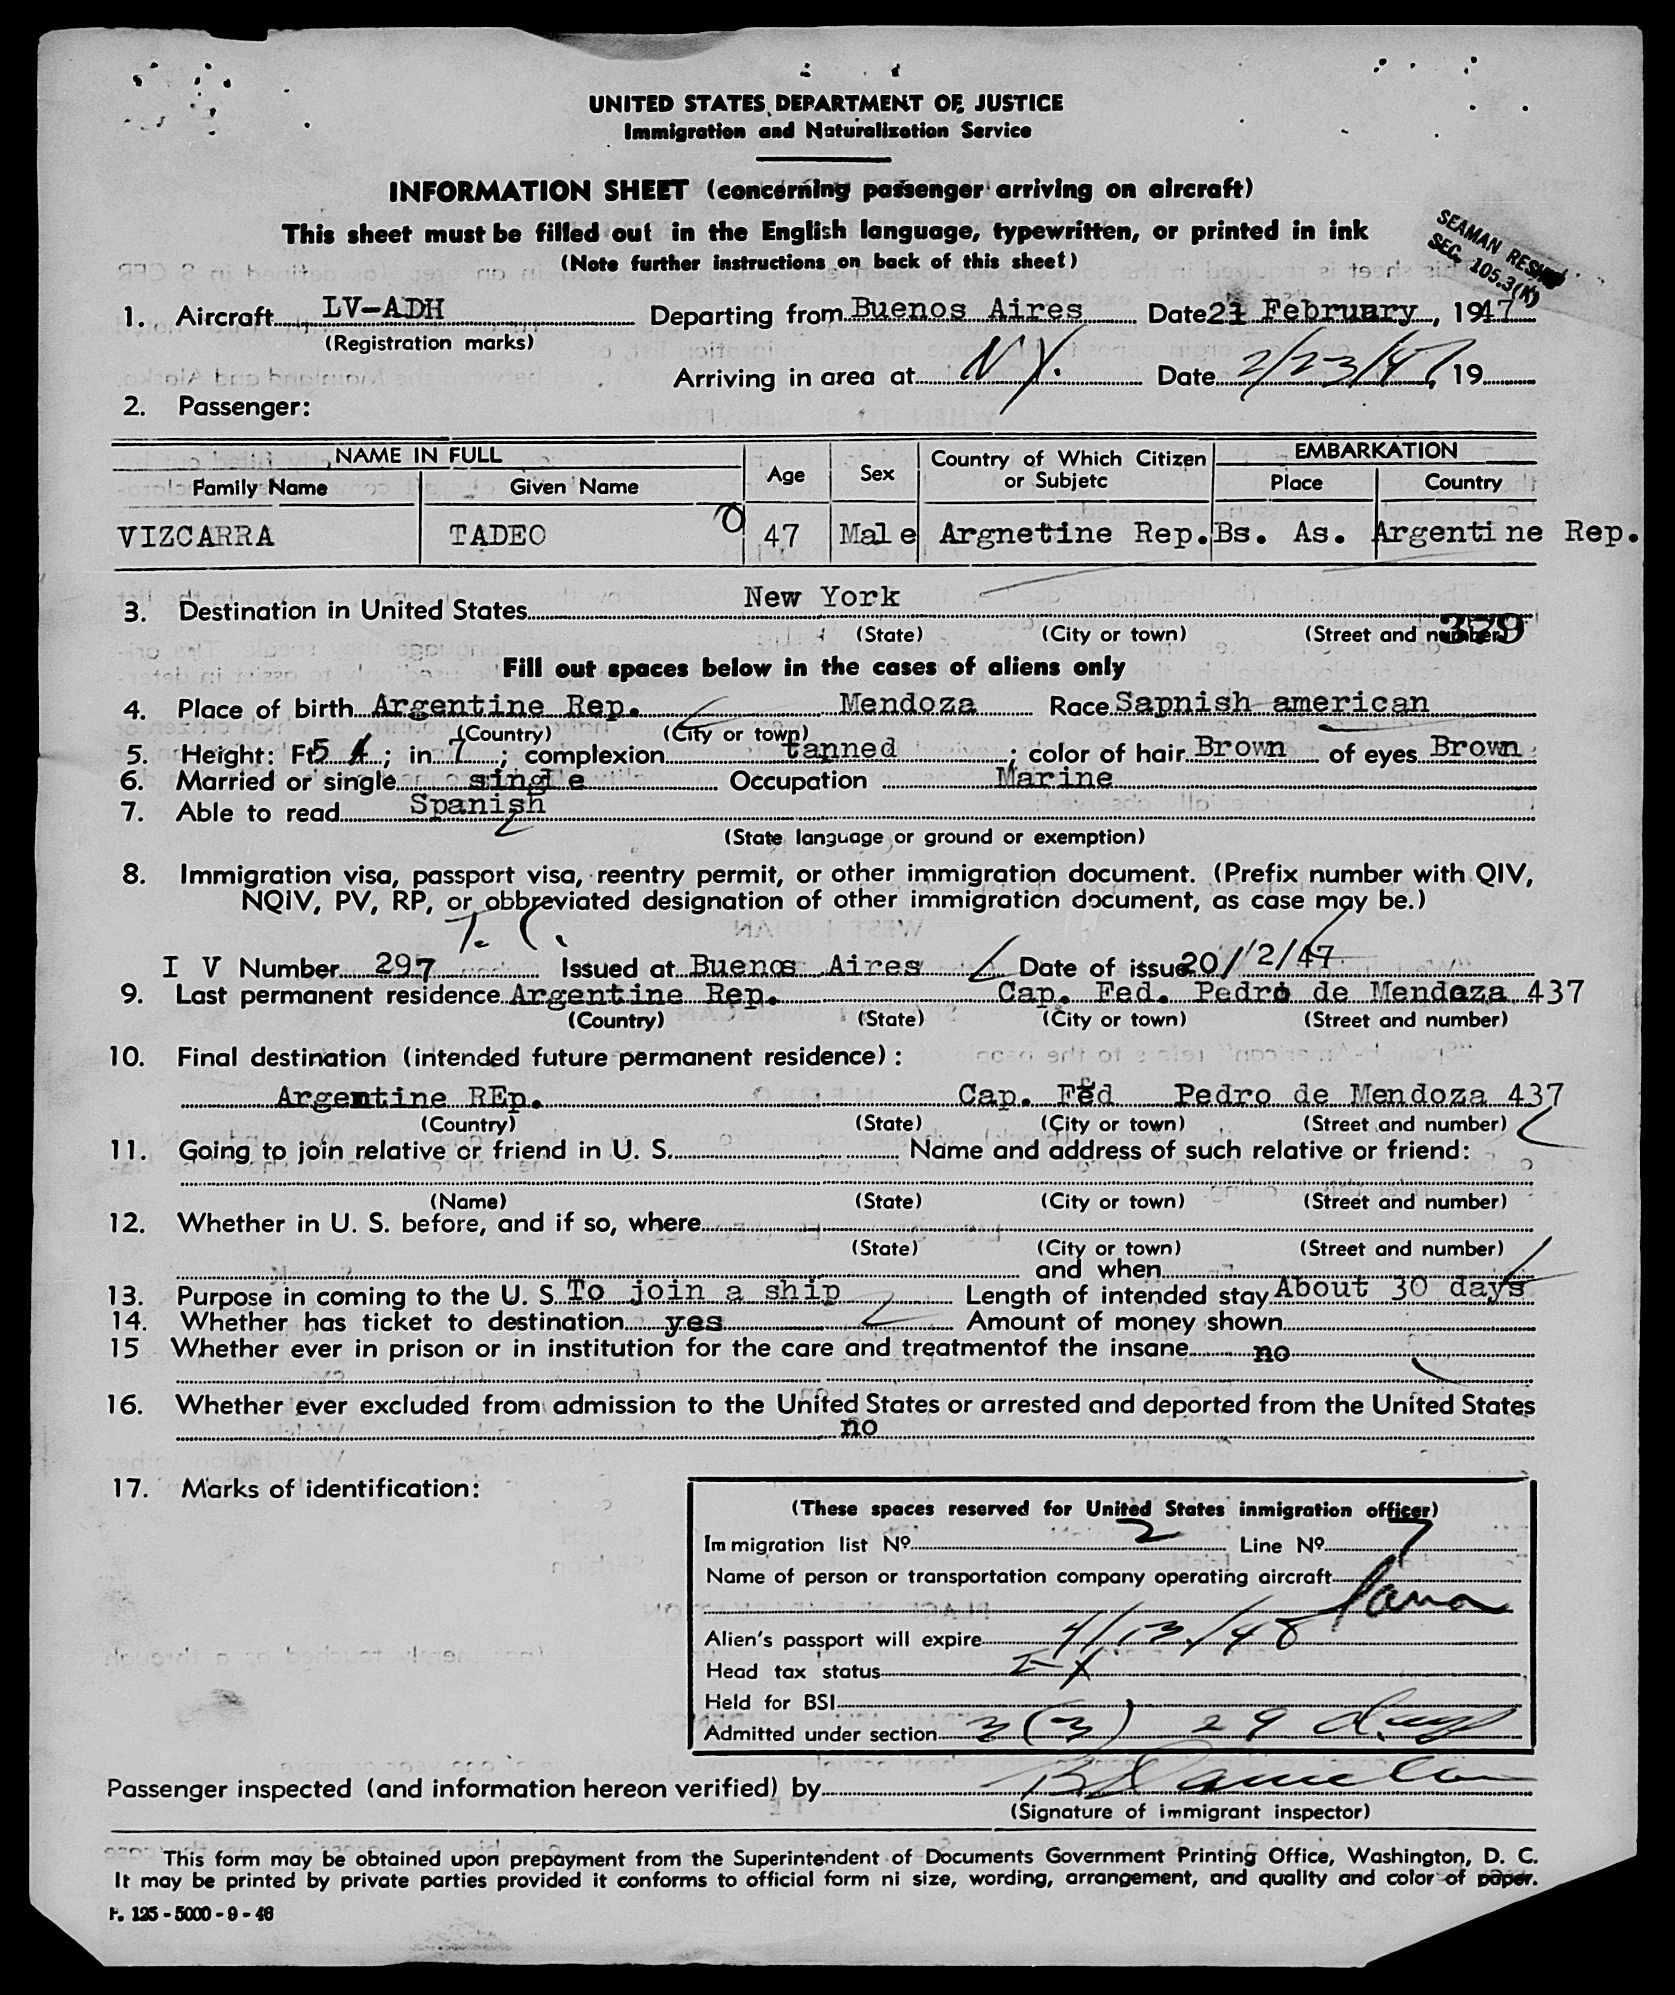 UNITED STATES DEPARTMENT OF JUSTICE
Immigration and Naturalization Service
INFORMATION SHEET (concerning passenger arriving on aircraft)
This sheet must be filled out in the English language, typewritten, or printed in ink
(Note further instructions on back of this sheet)
SEAMAN RESHIP
SEC. 105.3(K)
1. Aircraft LV-ADH Departing from Buenos Aires Date 21 February, 1947
(Registration marks)
Arriving in area at N.Y. Date 2/23/47, 19
2. Passenger:
NAME IN FULL Age Sex Country of Which Citizen or Subjetc EMBARKATION
Family Name Given Name Place Country
VIZCARRA TADEO 47 Male Argnetine Rep. Bs. As. Argentine Rep.
3. Destination in United States New York
(State) (City or town) (Street and number) 379
Fill out spaces below in the cases of aliens only
4. Place of birth Argentine Rep. Mendoza Race Sapnish american
(Country) (City or town)
5. Height: Ft 5; in 7; complexion tanned; color of hair Brown of eyes Brown
6. Married or single single Occupation Marine
7. Able to read Spanish
(State language or ground or exemption)
8. Immigration visa, passport visa, reentry permit, or other immigration document. (Prefix number with QIV,
NQIV, PV, RP, or abbreviated designation of other immigration document, as case may be.)
I V Number 297 Issued at Buenos Aires Date of issue 20/2/47
9. Last permanent residence Argentine Rep. Cap. Fed. Pedro de Mendoza 437
(Country) (State) (City or town) (Street and number)
10. Final destination (intended future permanent residence):
Argentine REp. Cap. Fed Pedro de Mendoza 437
(Country) (State) (City or town) (Street and number)
11. Going to join relative or friend in U. S. Name and address of such relative or friend:
(Name) (State) (City or town) (Street and number)
12. Whether in U. S. before, and if so, where
(State) (City or town) (Street and number)
and when
13. Purpose in coming to the U. S. To join a ship Length of intended stay About 30 days
14. Whether has ticket to destination yes Amount of money shown
15 Whether ever in prison or in institution for the care and treatmentof the insane no
16. Whether ever excluded from admission to the United States or arrested and deported from the United States
no
17. Marks of identification:
(These spaces reserved for United States inmigration officer)
Immigration list Nº 2 Line Nº 7
Name of person or transportation company operating aircraft
Alien's passport will expire 4/13/48
Head tax status
Held for BSI
Admitted under section 3(3) 29 days
Passenger inspected (and information hereon verified) by
(Signature of immigrant inspector)
This form may be obtained upon prepayment from the Superintendent of Documents Government Printing Office, Washington, D. C.
It may be printed by private parties provided it conforms to official form ni size, wording, arrangement, and quality and color of paper.
F. 125 - 5000 - 9 - 46